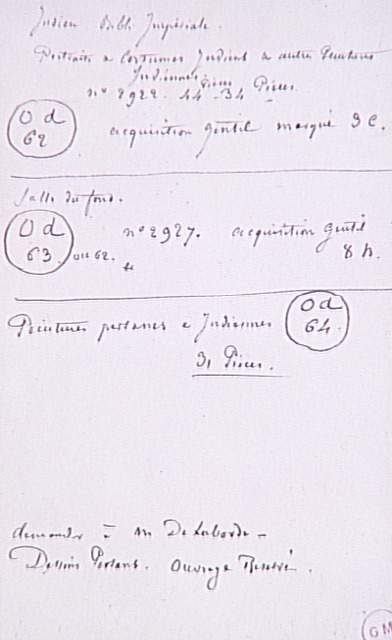 Indien Bibli Impériale.
Portraits & Costumes Indiens & autres Peintures
Indiennes
nº 2922. 44. 34 Pièces
Od
62
acquisition gentil marqué 3 C.
Salle du fond.
Od
63. ou 62.
nº 2927. acquisition Gentil
8 h.
Peintures persanes & Indiennes
Od
64.
31 Pièces.
demander à M DeLaborde –
Dessins Persans. Ouvrage Réservé.